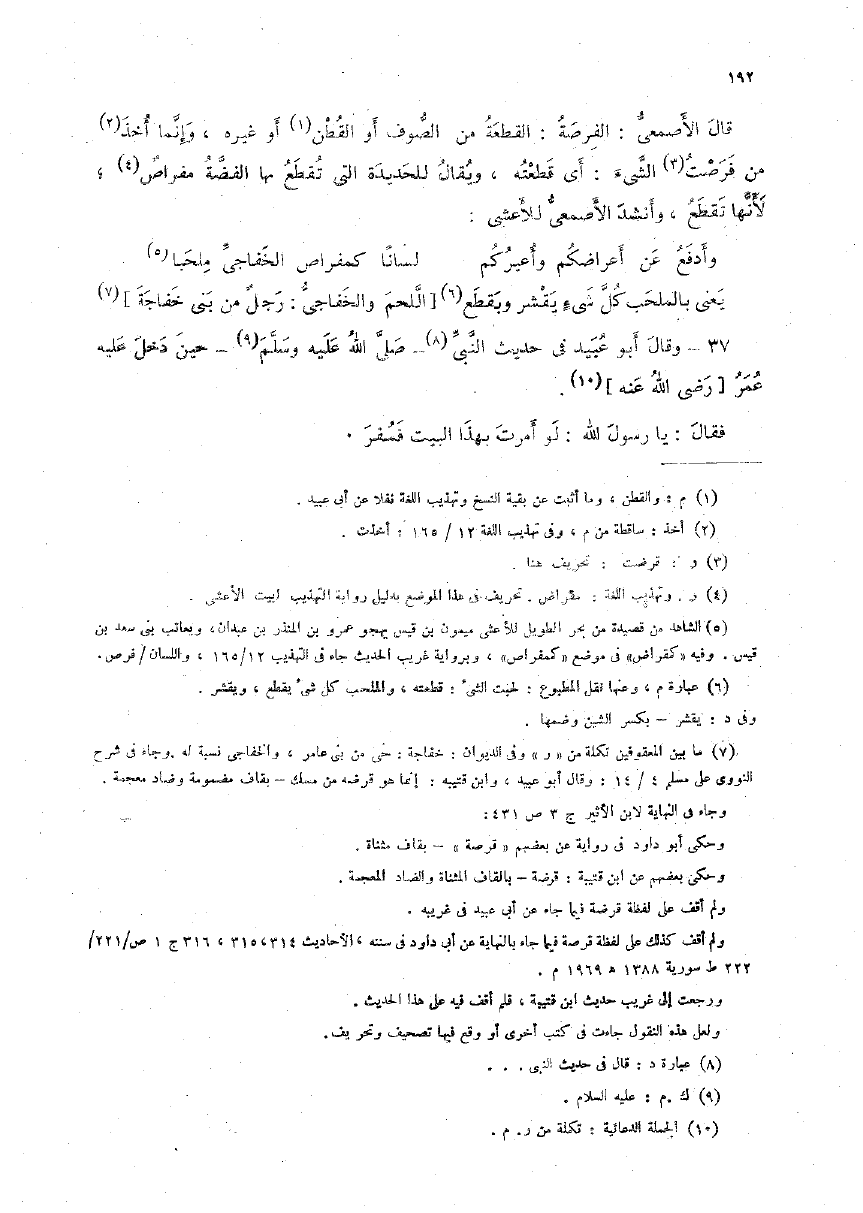 ١٩٢
قالَ الأَصمعىُّ : الفرصَةُ : القطعَةُ من الصُّوف أَو القُطْن(١) أَو غيره ، وَإِنَّما أُخذَ(٢)
من فَرَصْتُ(٣) الشَّىءَ : أَى قَطعْتُه ، ويُقالُ للحَديدَة التى تُقطَعُ بها الفضَّةُ مفراصٌ(٤) ؛
لأَنَّها تَقطَعُ ، وأَنشدَ الأَصمعىُّ للأَعشى :
وأَدفَعُ عَن أَعراضكُم وأُعيرُكُم لسانًا كمفراص الخَفاجىِّ مِلحَبا(٥) .
يَعنى بالملحَب كُلَّ شَىءٍ يَقْشر ويَقطَع(٦) [ اللحمَ والخَفاجىُّ : رَجلٌ من بَنى خَفاجَةَ ](٧)
٣٧ – وقالَ أَبو عُبَيد فى حديث النَّبىِّ(٨) – صَلَّى اللهُ عَلَيه وسَلَّمَ(٩) – حينَ دَخلَ عَليه
عُمَرُ [ رَضى اللهُ عَنه ](١٠) .
فقالَ : يا رسولَ الله : لَو أَمرتَ بهذَا البيت فَسُفرَ .
(١) م : والقطن ، وما أثبت عن بقية النسخ وتهذيب اللغة نقلا عن أبى عبيد .
(٢) أخذ : ساقطة من م ، وفى تهذيب اللغة ١٢ / ١٦٥ : أخذت .
(٣) و : قرضت : تحريف هنا .
(٤) ر . وتهذيب اللغة : مقراض . تحريف فى هذا الموضع بدليل رواية التهذيب لبيت الأعشى .
(٥) الشاهد من قصيدة من بحر الطويل للأعشى ميمون بن قيس يهجو عمرو بن المنذر بن عبدان، ويعاتب بنى سعد بن
قيس . وفيه «كقراض» فى موضع «كمفراص» ، وبرواية غريب الحديث جاء فى التهذيب ١٦٥/١٢ ، واللسان / فرص.
(٦) عبارة م ، وعنها نقل المطبوع : لحبت الشىء : قطعته ، والملحب كل شىء يقطع ، ويقشر .
وفى د : يقشر – بكسر الشين وضمها .
(٧) ما بين المعقوفين تكلة من « ر » وفى الديوان : خفاجة : حى من بنى عامر ، والخفاجى نسبة له .وجاء فى شرح
النووى على مسلم ٤ / ١٤ : وقال أبو عبيد ، وابن قتيبه : إنما هو قرضه من مسك – بقاف مضمومة وضاد معجمة .
وجاء فى النهاية لابن الأثير ج ٣ ص ٤٣١:
وحكى أبو داود فى رواية عن بعضهم « قرصة » – بقاف مثناة .
وحكى بعضهم عن ابن قتيبة : قرضة – بالقاف المثناة والضاد المعجمة .
ولم أقف على لفظة قرضة فيما جاء عن أبى عبيد فى غريبه .
ولم أقف كذلك على لفظة قرصة فيما جاء بالنهاية عن أبى داود فى سننه ، الأحاديث ٣١٤،٣١٥ ، ٣١٦ ج ١ ص/٢٢١/
٢٢٢ ط سورية ١٣٨٨ ه ١٩٦٩ م .
ورجعت إلى غريب حديث ابن قتيبة ، فلم أقف فيه على هذا الحديث .
ولعل هذه النقول جاءت فى كتب أخرى أو وقع فيها تصحيف وتحريف.
(٨) عبارة د : قال فى حديث النبى . . .
(٩) ك .م : عليه السلام .
(١٠) الجملة الدعائية : تكلة من ر. م .